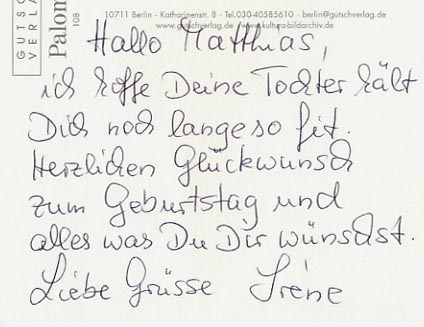 GUTSC
VERLA
Palom
108
10711 Berlin - Katharinenstr. 8 - Tel.030-40585610 - berlin@gutschverlag.de
www.gutschverlag.de /www.kulturg-bildarchiv.de
Hallo Matthias,
ich hoffe Deine Tochter hält
Dich noch lange so fit.
Herzlichen Glückwunsch
zum Geburtstag und
alles was Du Dir wünschst.
Liebe Grüsse Irène